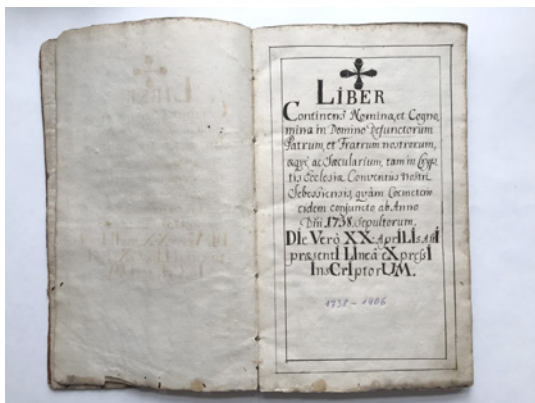 LIBER
Continens Nomina, et Cogno
mina in Domino Defunctorum
Patrum, et Fratrum nostrorum,
æquè ac Sæcularium, tam in Cryp
tis Ecclesiæ Conventûs nostri
Sebessiensis, quàm Coemeterio
eidem conjuncto ab Anno
Dni 1738. sepultorum.
DIe Verò XX. AprILIs Anni
præsentI LIneâ eXpressI
InsCrIptorUM.
1738 - 1906